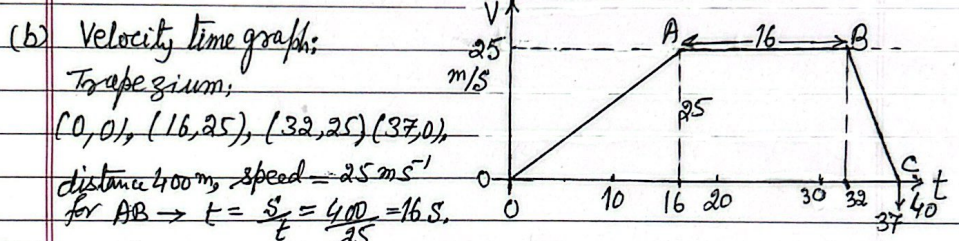 (b) Velocity time graph:
Trapezium;
(0,0), (16,25), (32,25) (37,0),
distance 400 m, speed = 25 ms⁻¹
for AB → t = S/t = 400/25 = 16 S.
V
25
m/s
A
16
B
25
0
C
t
0
10
16
20
30
32
37
40